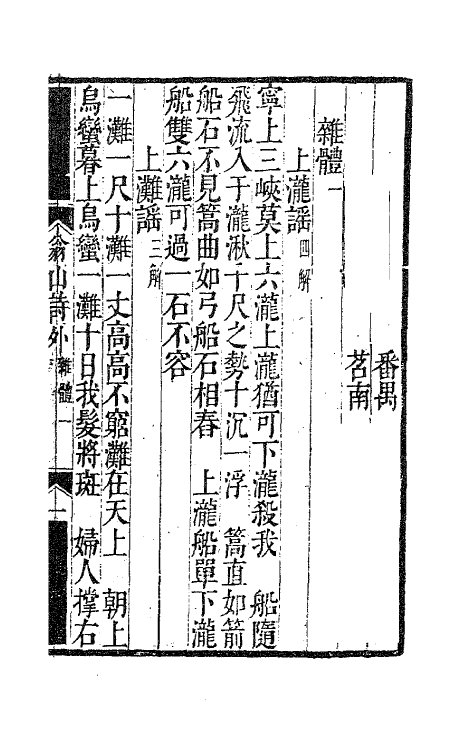 番禺
苕南
雜體一
上瀧謡四解
寧上三峽莫上六瀧上瀧猶可下瀧殺我　船隨
飛流入于瀧湫十尺之勢十沉一浮　篙直如箭
船石不見篙曲如弓船石相舂　上瀧船單下瀧
船雙六瀧可過一石不容
上灘謡三解
一灘一尺十灘一丈高高不窮灘在天上　朝上
烏蠻暮上烏蠻一灘十日我髮將斑　婦人撑右
翁山詩外　雜體一　一